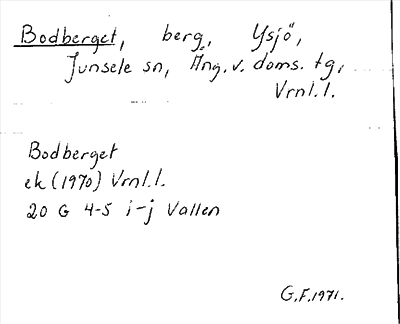 Bodberget, berg, Ysjö,
Junsele sn, Ång. v. doms. tg,
Vrnl.l.
Bodberget
ek (1970) Vrnl.l.
20 G 4-5 i-j Vallen
G.F. 1971.